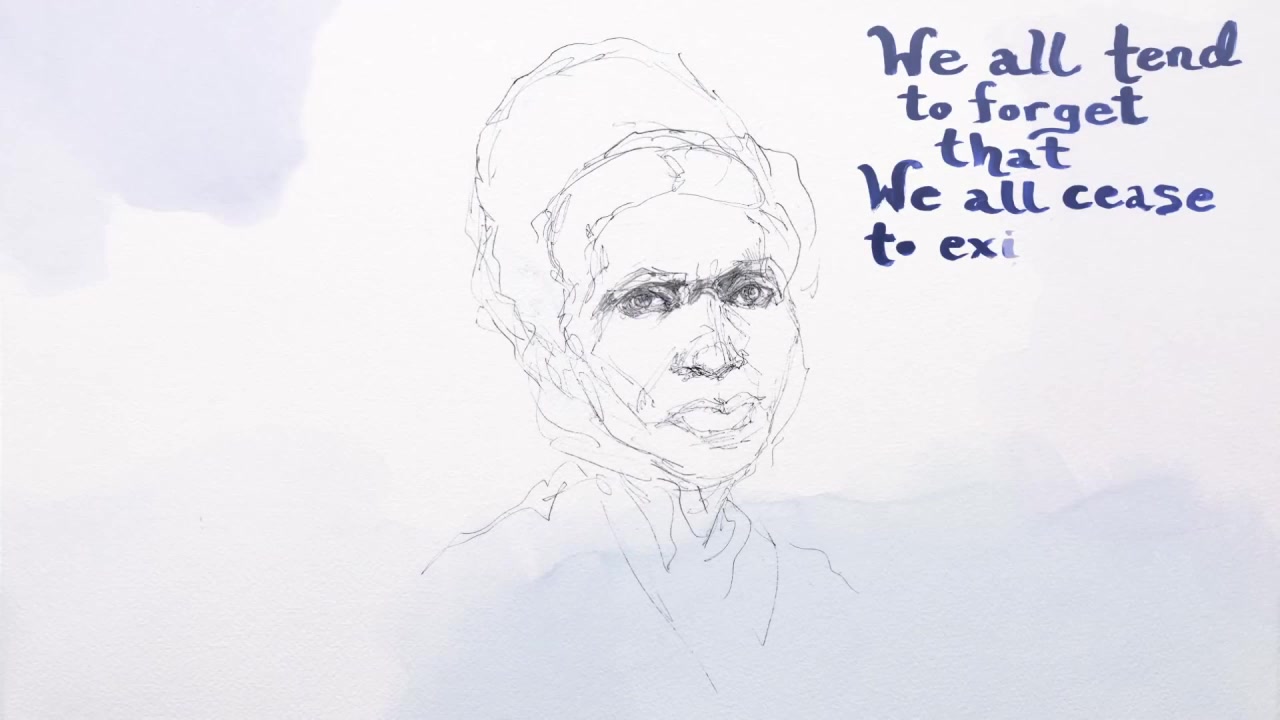 We all tend
to forget
that
We all cease
to exi